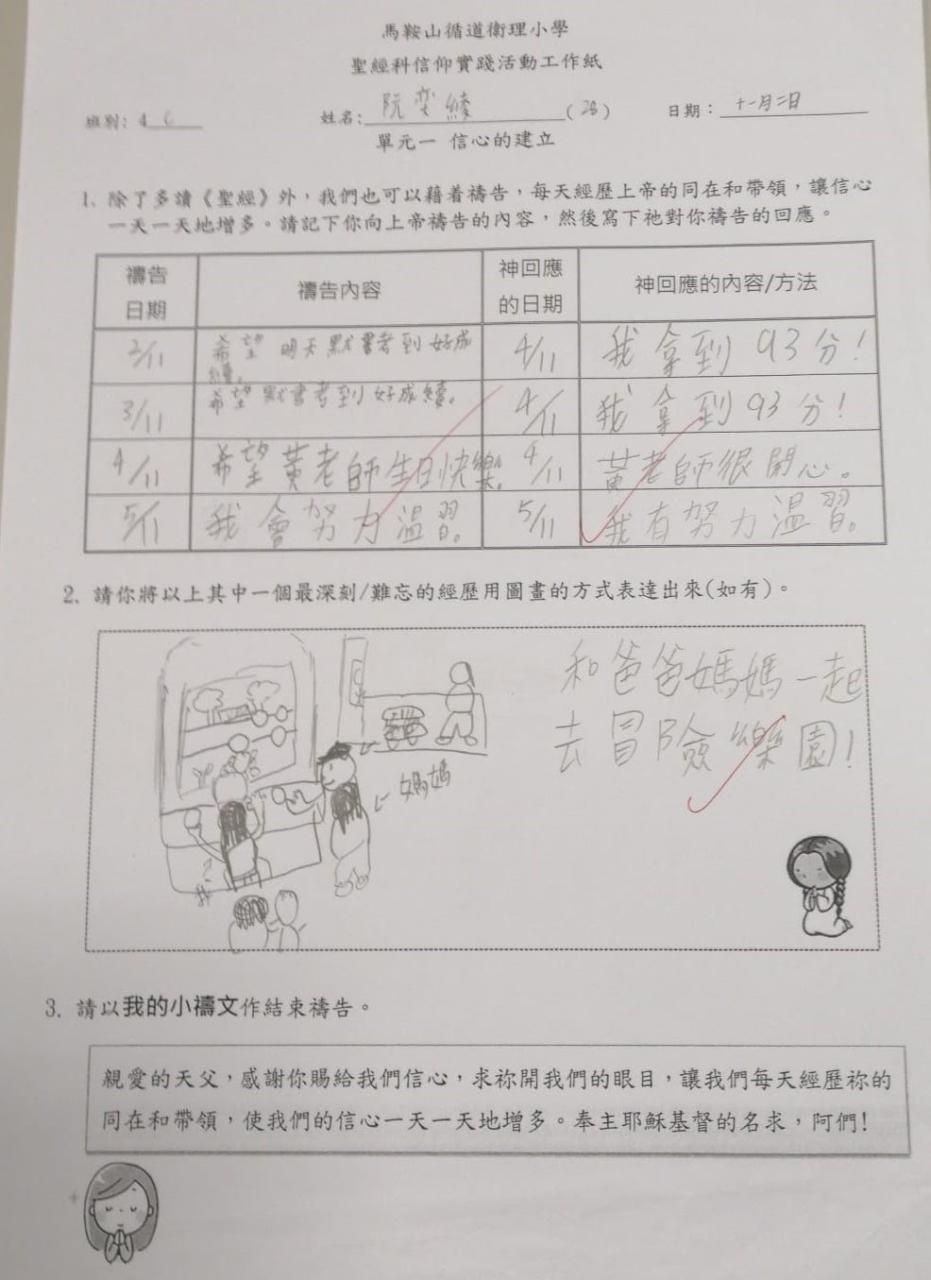 馬鞍山循道衛理小學
聖經科信仰實踐活動工作紙
班別: 4C 姓名: 阮奕綾 (28) 日期: 十一月二日
單元一 信心的建立
1. 除了多讀《聖經》外，我們也可以藉着禱告，每天經歷上帝的同在和帶領，讓信心
一天一天地增多。請記下你向上帝禱告的內容，然後寫下祂對你禱告的回應。
禱告日期 禱告內容 神回應的日期 神回應的內容/方法
2/11 希望明天默書考到好成績。 4/11 我拿到93分!
3/11 希望默書考到好成績。 4/11 我拿到93分!
4/11 希望黃老師生日快樂。 4/11 黃老師很開心。
5/11 我會努力溫習。 5/11 我有努力溫習。
2. 請你將以上其中一個最深刻/難忘的經歷用圖畫的方式表達出來(如有)。
和爸爸媽媽一起
去冒險樂園!
媽媽
我
3. 請以我的小禱文作結束禱告。
親愛的天父，感謝你賜給我們信心，求祢開我們的眼目，讓我們每天經歷祢的
同在和帶領，使我們的信心一天一天地增多。奉主耶穌基督的名求，阿們!